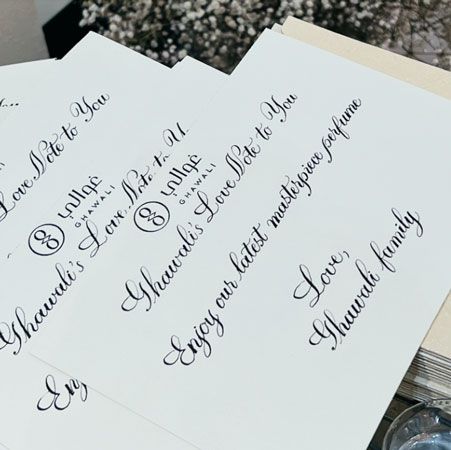 Love Note to You
غوالي
GHAWALI
Ghawali's Love Note to
Enj
غوالي
GHAWALI
Ghawali's Love Note to You
Enjoy our latest masterpiece perfume
Love,
Ghawali family